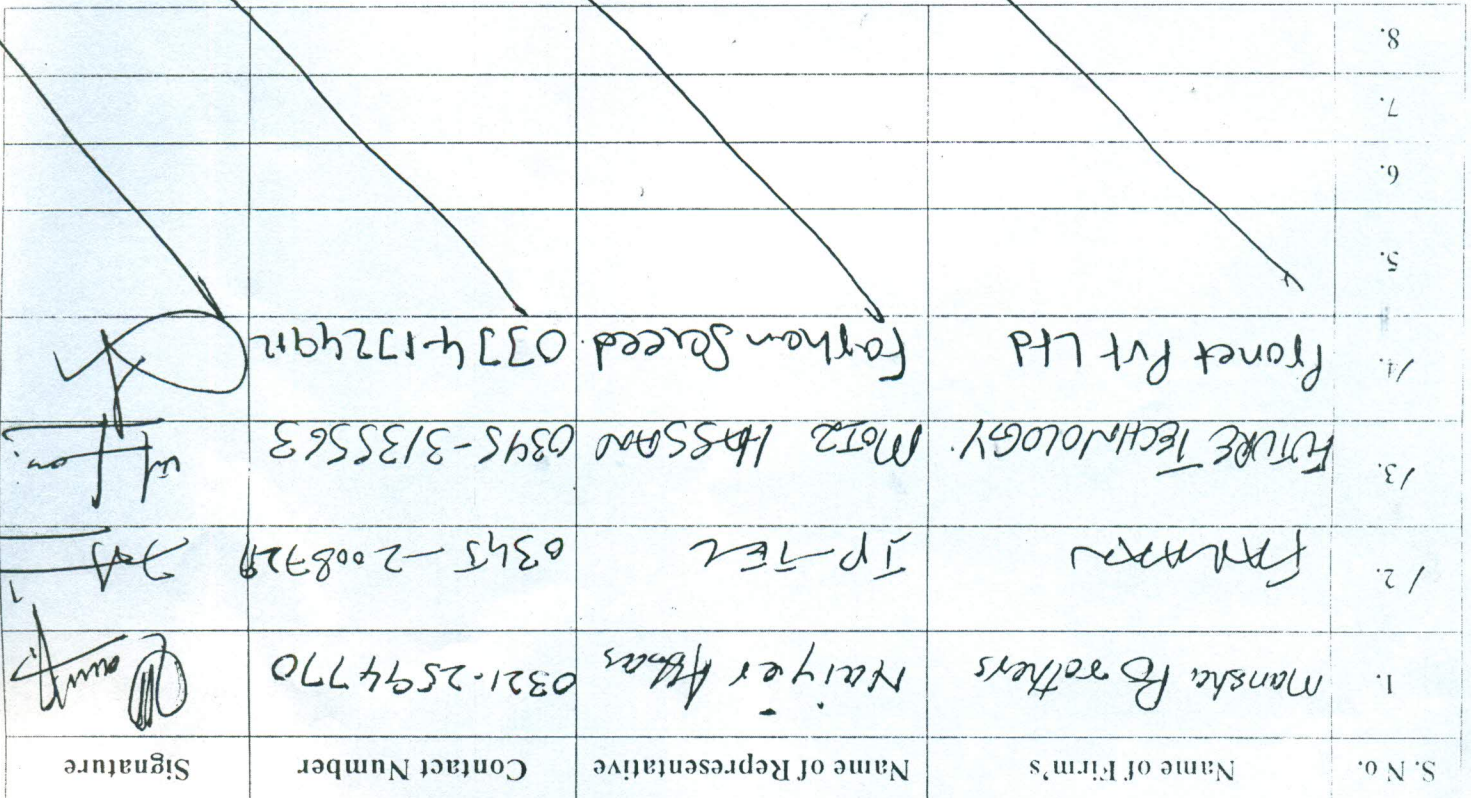 S. No. Name of Firm's Name of Representative Contact Number Signature
1. Mansha Brothers Naiyer Abbas 0321-2594770
2. IP-TEL
3. FUTURE TECHNOLOGY. MOIZ HASSAN 0345-3135563
4. Pronet Pvt Ltd Farhan Saeed
5.
6.
7.
8.